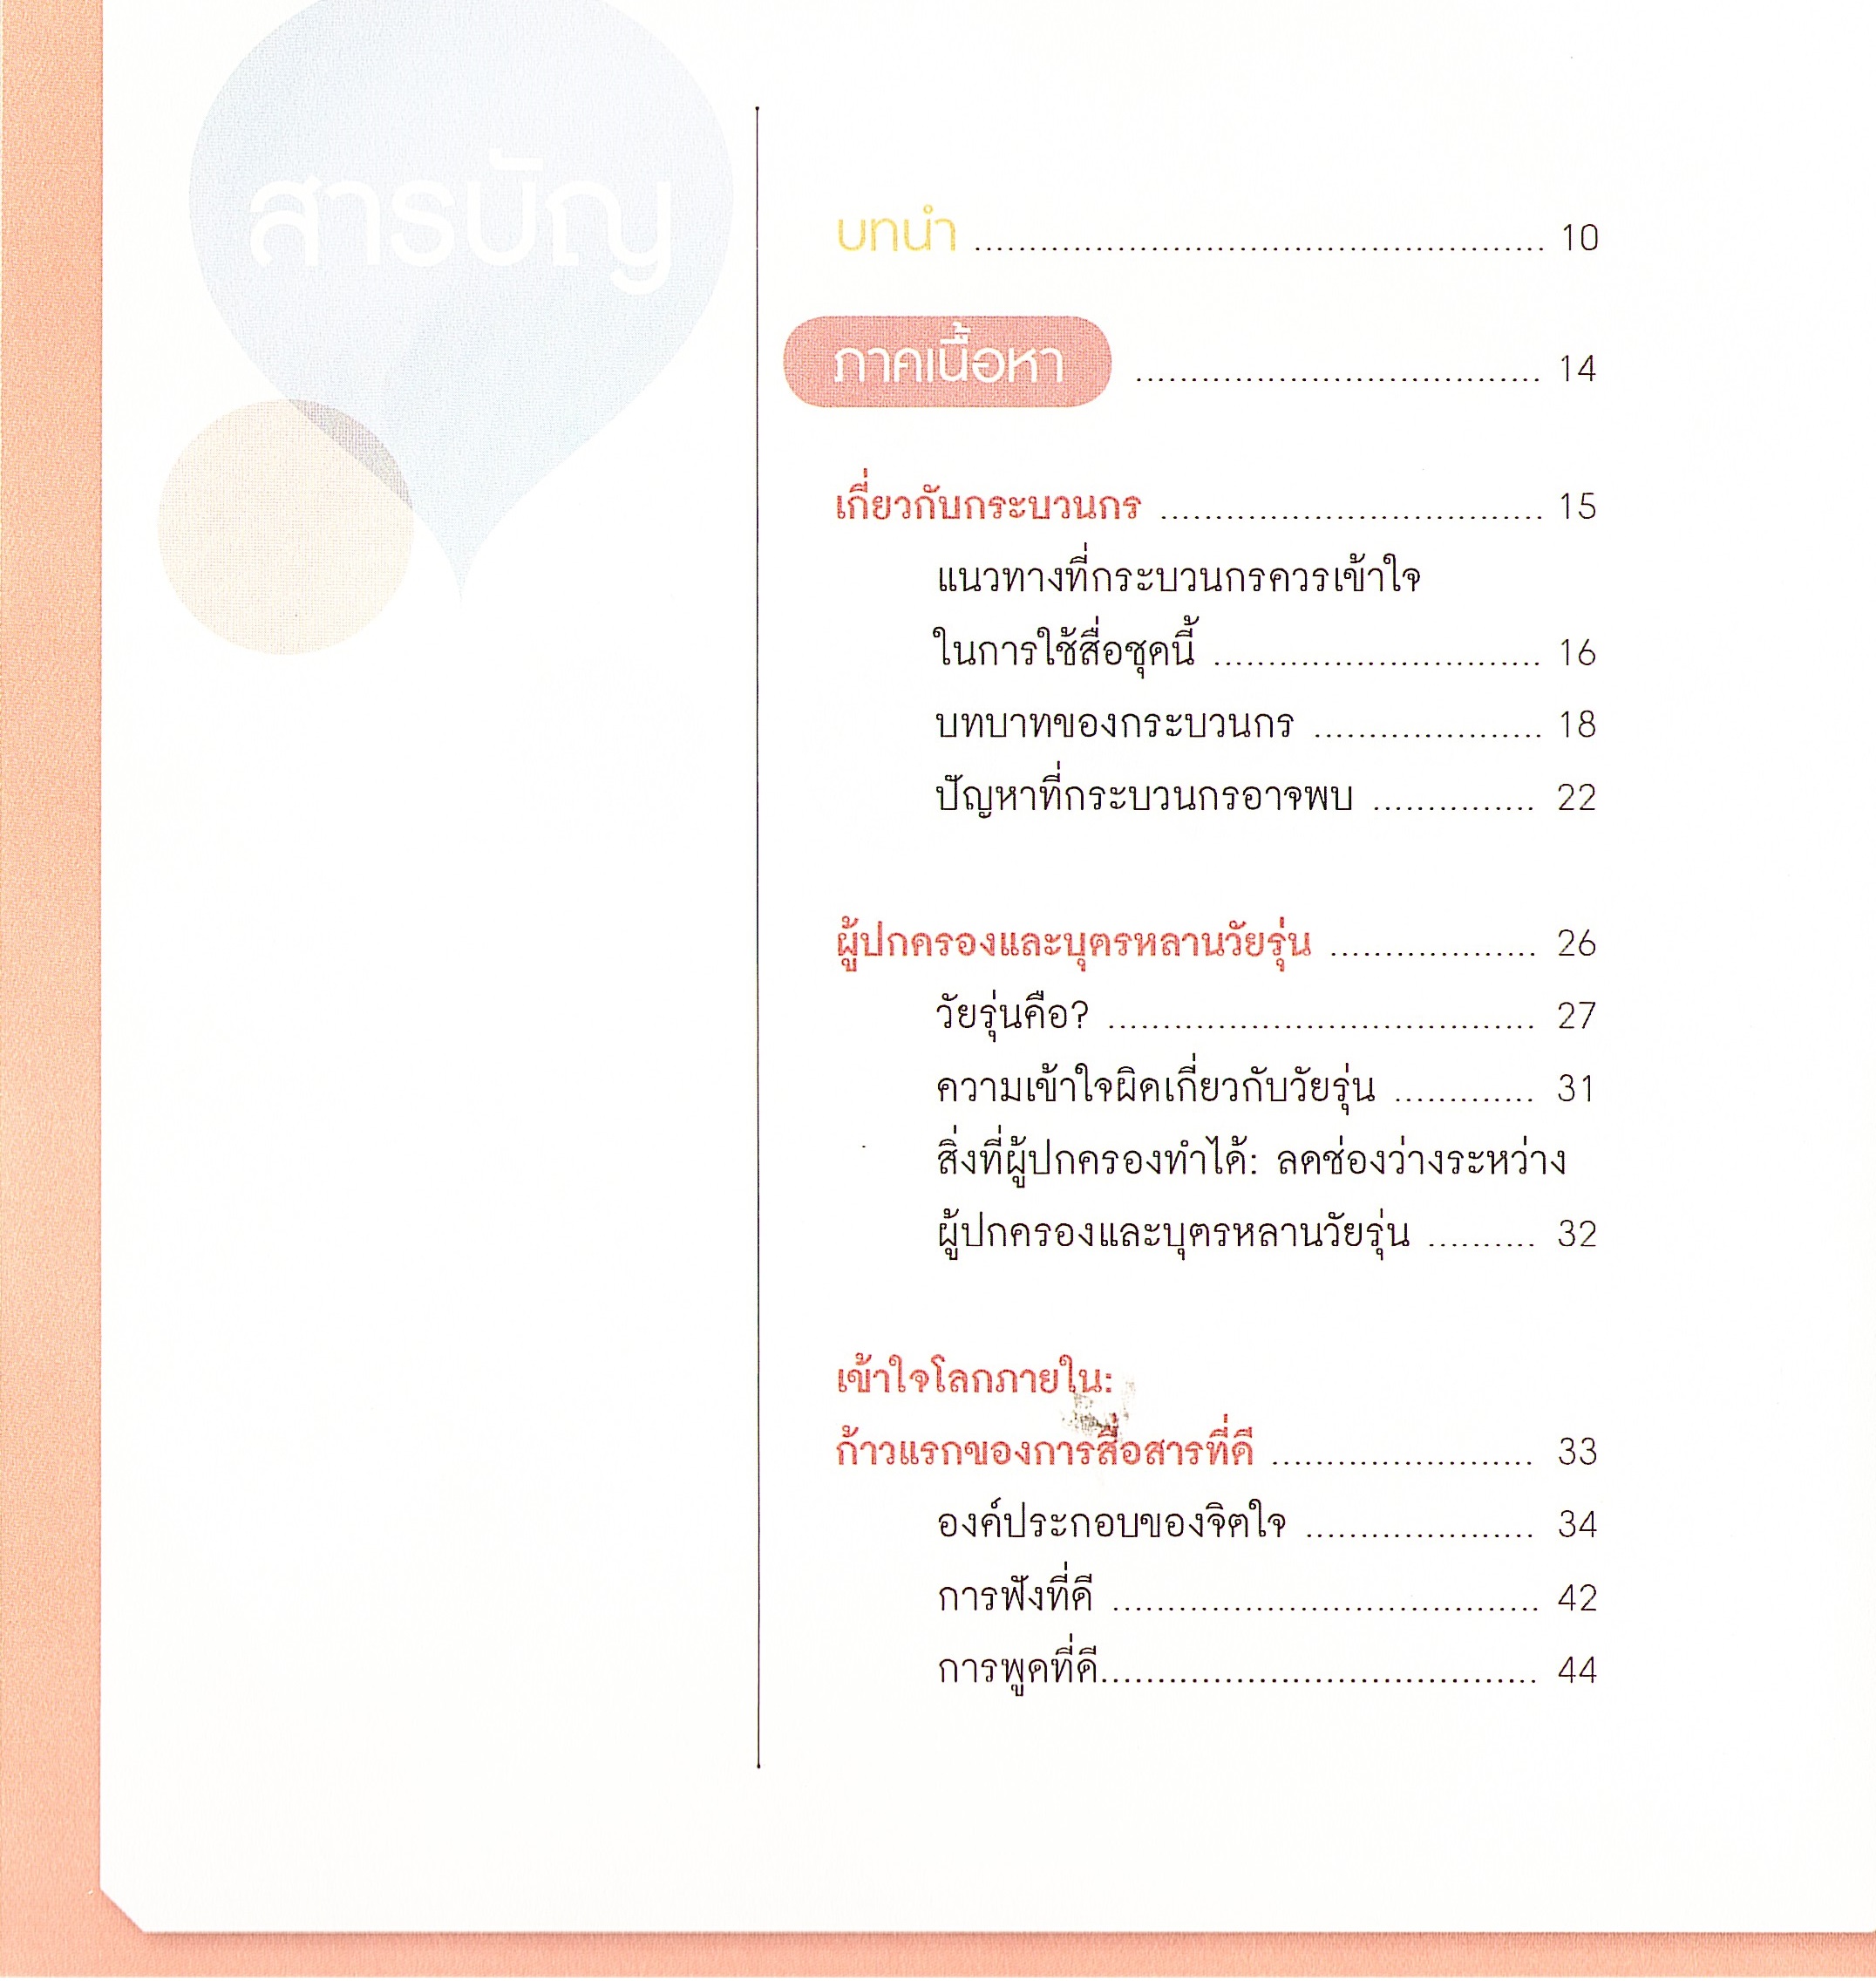 สารบัญ
บทนำ ................................................... 10
ภาคเนื้อหา ..................................... 14
เกี่ยวกับกระบวนกร ................................... 15
แนวทางที่กระบวนกรควรเข้าใจ
ในการใช้สื่อชุดนี้ .............................. 16
บทบาทของกระบวนกร ..................... 18
ปัญหาที่กระบวนกรอาจพบ ............... 22
ผู้ปกครองและบุตรหลานวัยรุ่น ................... 26
วัยรุ่นคือ? ....................................... 27
ความเข้าใจผิดเกี่ยวกับวัยรุ่น ............. 31
สิ่งที่ผู้ปกครองทำได้: ลดช่องว่างระหว่าง
ผู้ปกครองและบุตรหลานวัยรุ่น .......... 32
เข้าใจโลกภายใน:
ก้าวแรกของการสื่อสารที่ดี ........................ 33
องค์ประกอบของจิตใจ ..................... 34
การฟังที่ดี ....................................... 42
การพูดที่ดี........................................ 44